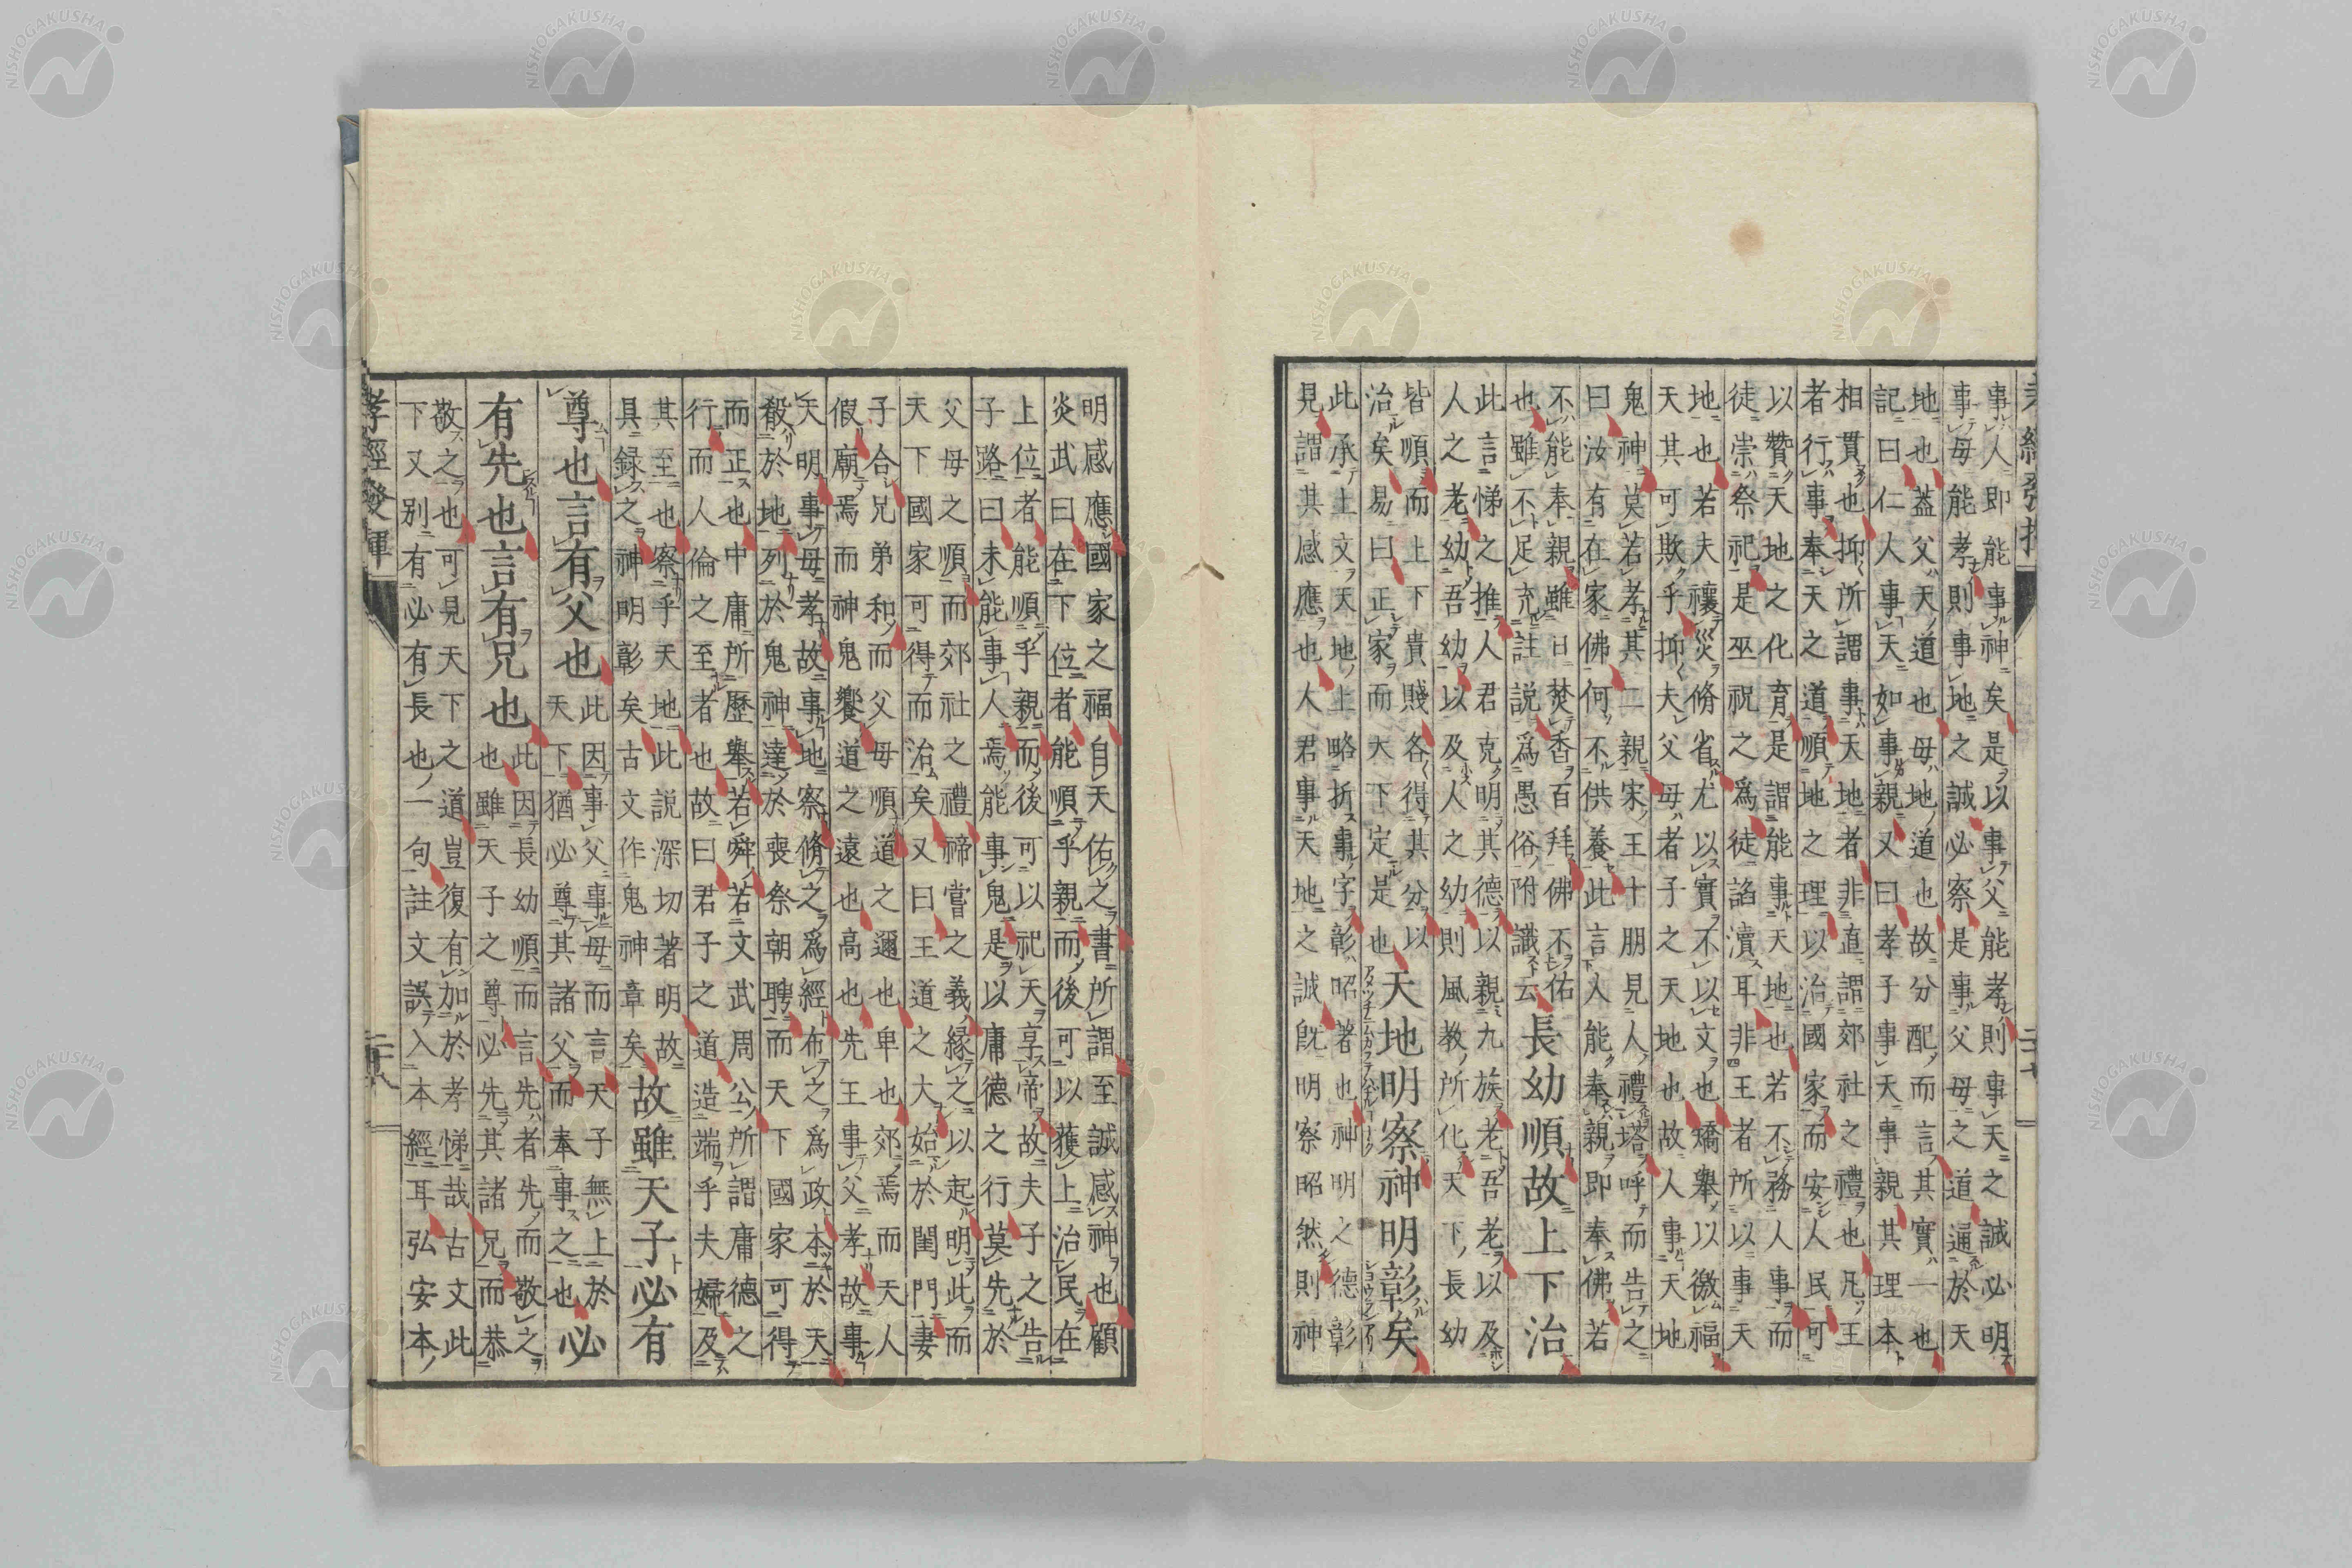 孝經發揮
事人即能事神矣是以事父能孝則事天之誠必明
事母能孝則事地之誠必察是事父母之道通於天
地也蓋父天道也母地道也故分配而言其實一也
記曰仁人事天如事親又曰孝子事天事親其理本
相貫也抑所謂事天地者非直謂郊社之禮也凡王
者行事奉天之道順地之理以治國家而安人民可
以贊天地之化育是謂能事天地也若不務人事而
徒崇祭祀是巫祝之爲徒諂瀆耳非王者所以事天
地也若夫禳災脩省尤以實不以文也矯舉以徼福
天其可欺乎抑夫父母者子之天地也故人事天地
鬼神莫若孝其二親宋王十朋見人禮塔呼而告之
曰汝有在家佛何不供養此言人能奉親即奉佛若
不能奉親雖日焚香百拜佛不佑
也雖不足充註説爲愚俗附識云
長幼順故上下治
此言悌之推人君克明其德以親九族老吾老以及
人之老幼吾幼以及人之幼則風教所化天下長幼
皆順而上下貴賤各得其分以
治矣易曰正家而天下定是也
天地明察神明彰矣
此承上文天地上略折事字彰昭著也神明之德彰
見謂其感應也人君事天地之誠既明察昭然則神
明感應國家之福自天佑之書所謂至誠感神也顧
炎武曰在下位者能順乎親而後可以獲上治民在
上位者能順乎親而後可以祀天享帝故夫子之告
子路曰未能事人焉能事鬼是以庸德之行莫先於
父母之順而郊社之禮禘嘗之義緣之以起明此而
天下國家可得而治矣又曰王道之大始於閨門妻
子合兄弟和而父母順道之邇也卑也郊焉而天人
假廟焉而神鬼饗道之遠也高也先王事父孝故事
天明事母孝故事地察脩之爲經布之爲政本於天
殽於地列於鬼神達於喪祭朝聘而天下國家可得
而正也中庸所歷舉若舜若文武周公所謂庸德之
行而人倫之至者也故曰君子之道造端乎夫婦及
其至也察乎天地此説深切著明故
具録之神明彰矣古文作鬼神章矣
故雖天子必有
尊也言有父也
此因事父事母而言天子無上於
天下猶必尊其諸父而奉事之也
必
有先也言有兄也
此因長幼順而言先者先而敬之
也雖天子之尊必先其諸兄而恭
敬之也可見天下之道豈復有加於孝悌哉古文此
下又別有必有長也一句註文誤入本經耳弘安本